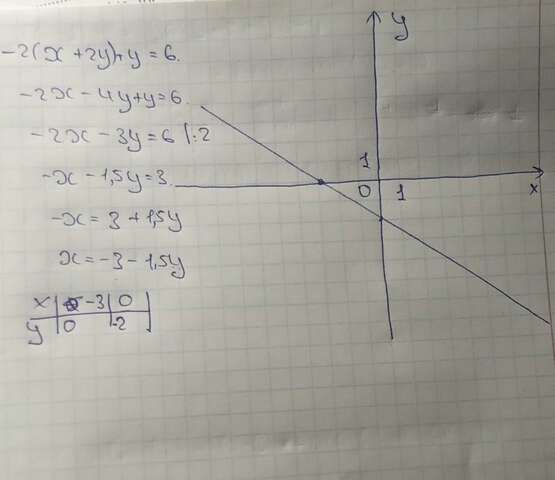 -2(x + 2y)+y = 6.
-2x - 4y+y=6.
-2x - 3y = 6 |:2
-x - 1,5y = 3.
-x = 3 + 1,5y
x = -3 - 1,5y
x | -3 | 0 |
y | 0 | -2 |
y
1
0 1 x